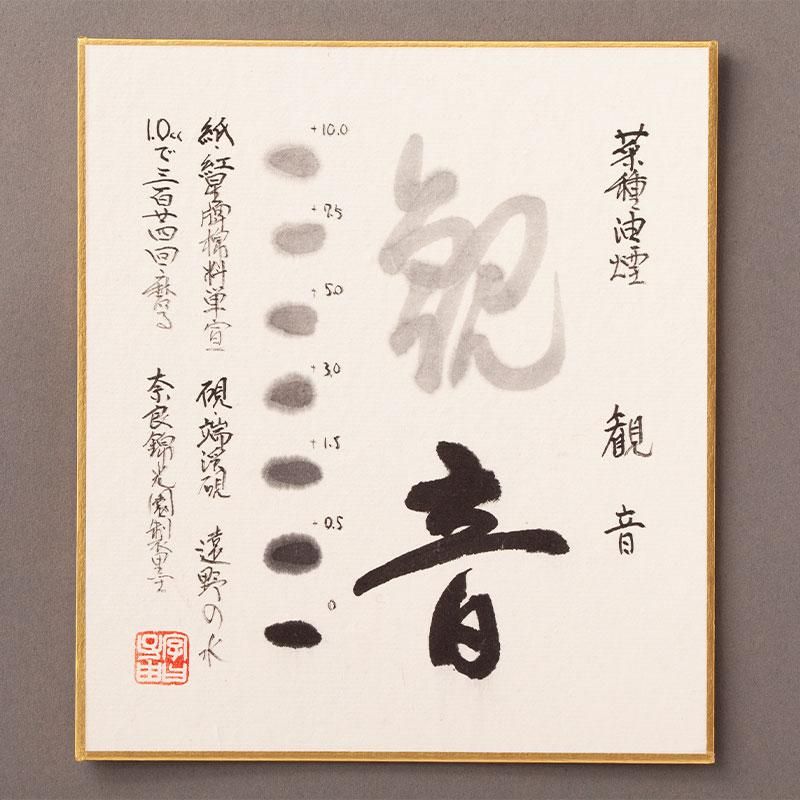 菜種油煙
観音
観音
+10.0
+7.5
+5.0
+3.0
+1.5
+0.5
0
紙・紅星牌棉料単宣
硯・端渓硯
遠野の水
1.0ccで三百廿四回磨る
奈良錦光園製墨